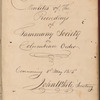 Minutes of the
Proceedings of
Tammany Society
or
Columbian Order
Commencing 1st May 1815
John White